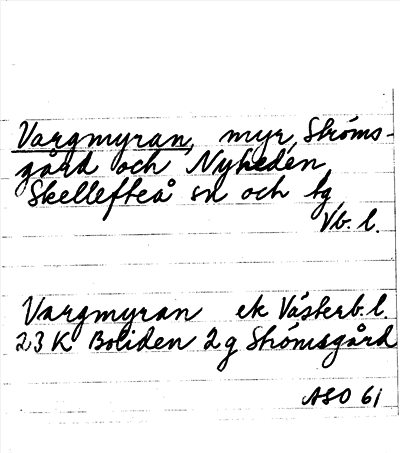 Vargmyran, myr, Ströms-
gård och Nyheden,
Skellefteå sn och tg
Vb. l.
Vargmyran ek Västerb. l.
23 K Boliden 2 g Strömsgård
ASO 61